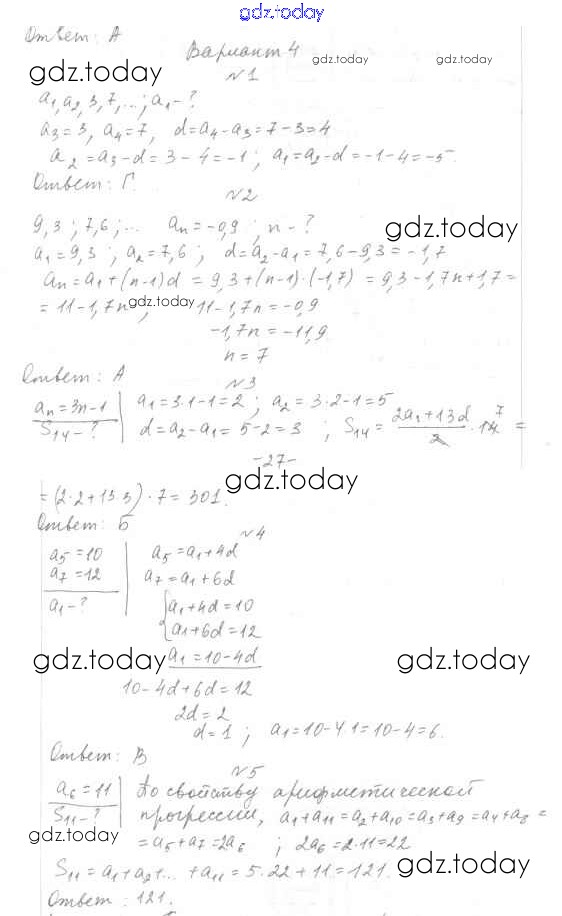 gdz.today
Ответ: А
Вариант 4
gdz.today gdz.today gdz.today
№1
a₁, a₂, 3, 7, ...; a₁ - ?
a₃ = 3, a₄ = 7, d = a₄ - a₃ = 7 - 3 = 4
a₂ = a₃ - d = 3 - 4 = -1; a₁ = a₂ - d = -1 - 4 = -5.
Ответ: Г.
№2
9,3; 7,6; ... aₙ = -0,9; n - ?
gdz.today
a₁ = 9,3; a₂ = 7,6; d = a₂ - a₁ = 7,6 - 9,3 = -1,7
aₙ = a₁ + (n-1)d = 9,3 + (n-1)·(-1,7) = 9,3 - 1,7n + 1,7 =
= 11 - 1,7n; 11 - 1,7n = -0,9
gdz.today
-1,7n = -11,9
n = 7
Ответ: А
№3
aₙ = 3n - 1 a₁ = 3·1 - 1 = 2; a₂ = 3·2 - 1 = 5
S₁₄ - ? d = a₂ - a₁ = 5 - 2 = 3; S₁₄ = (2a₁ + 13d)/2 · 14 7 =
-27-
gdz.today
= (2·2 + 13·3)·7 = 301.
Ответ: Б
№4
a₅ = 10 a₅ = a₁ + 4d
a₇ = 12 a₇ = a₁ + 6d
a₁ - ? {a₁ + 4d = 10
{a₁ + 6d = 12
gdz.today a₁ = 10 - 4d gdz.today
10 - 4d + 6d = 12
2d = 2
d = 1; a₁ = 10 - 4·1 = 10 - 4 = 6.
Ответ: В
№5
a₆ = 11 По свойству арифметической
S₁₁ - ? прогрессии, a₁ + a₁₁ = a₂ + a₁₀ = a₃ + a₉ = a₄ + a₈ =
gdz.today = a₅ + a₇ = 2a₆; 2a₆ = 2·11 = 22
S₁₁ = a₁ + a₂... + a₁₁ = 5·22 + 11 = 121.
gdz.today
Ответ: 121.